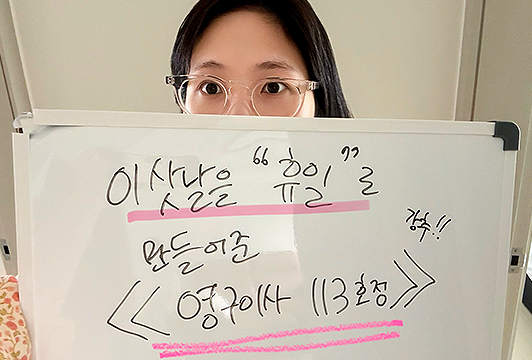 이삿날을 “휴일”로
만들어준
강추!!
<< 영구이사 113호점>>